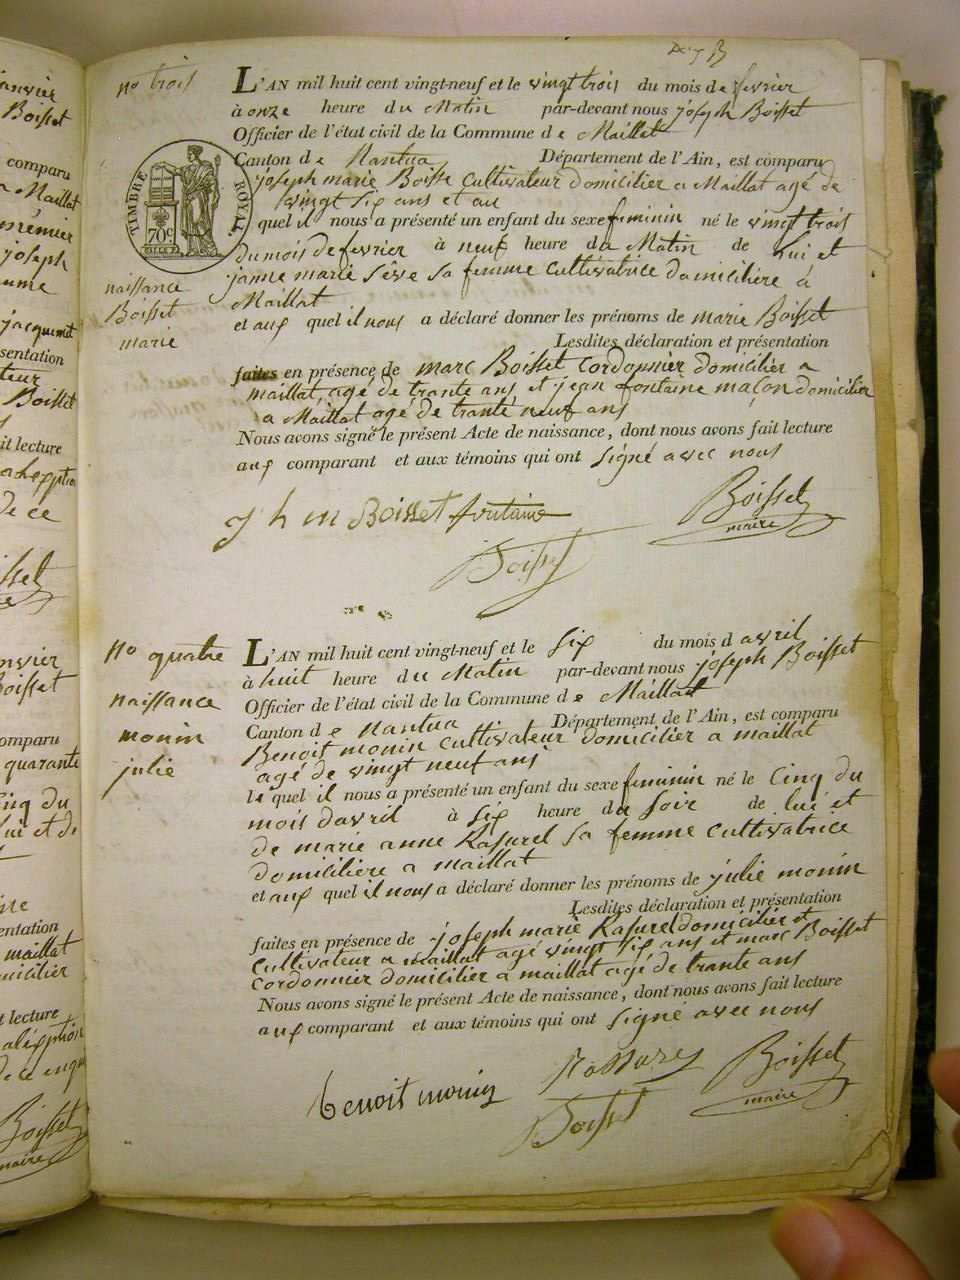 nº trois
L'AN mil huit cent vingt-neuf et le vingt trois du mois de fevrier
à onze heure du Matin par-devant nous joseph Boisset
Officier de l'état civil de la Commune de Maillat
Canton de Nantua Département de l'Ain, est comparu
joseph marie Boisse Cultivateur domicilier a Maillat agé de
vingt six ans et au
quel il nous a présenté un enfant du sexe feminin né le vingt trois
du mois de fevrier à neuf heure du Matin de Lui et
janne marie seve sa femme Cultivatrice domicilière à
Maillat
et aux quel il nous a déclaré donner les prénoms de marie Boisset
Lesdites déclaration et présentation
faites en présence de marc Boisset Cordonnier domicilier a
maillat, agé de trante ans et jean fontaine maçon domicilier
a Maillat agé de trante neuf ans
Nous avons signé le présent Acte de naissance, dont nous avons fait lecture
aux comparant et aux témoins qui ont signé avec nous
TIMBRE ROYAL
70c
naissance
Boisset
marie
J h m Boisset fontaine
Boisset
maire
Boisset
nº quatre
naissance
monin
julie
L'AN mil huit cent vingt-neuf et le six du mois d avril
à huit heure du Matin par-devant nous joseph Boisset
Officier de l'état civil de la Commune de Maillat
Canton de Nantua Département de l'Ain, est comparu
Benoit monin cultivateur domicilier a maillat
agé de vingt neuf ans
le quel il nous a présenté un enfant du sexe feminin né le Cinq du
mois davril à six heure du soir de lui et
de marie anne Rasurel sa femme cultivatrice
domiciliere a maillat
et aux quel il nous a déclaré donner les prénoms de julie monin
Lesdites déclaration et présentation
faites en présence de joseph marie Rasurel domicilier et
Cultivateur a maillat agé vingt six ans et marc Boisset
Cordonnier domicilier a maillat agé de trante ans
Nous avons signé le présent Acte de naissance, dont nous avons fait lecture
aux comparant et aux témoins qui ont signé avec nous
benoit monin
Boisset
maire
Boisset